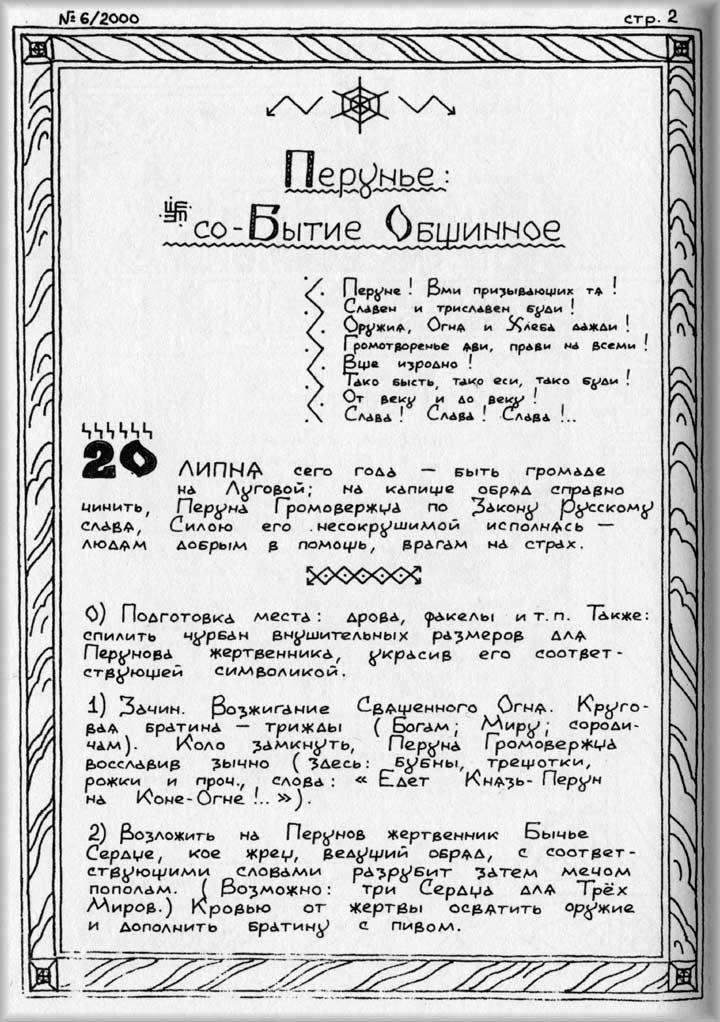 № 6/2000
стр. 2
Перунье:
со-Бытие Общинное
Перуне! Вми призывающих тя!
Славен и триславен буди!
Оружия, Огня и Хлеба дажди!
Громотворенье яви, прави на всеми!
Вще изродно!
Тако бысть, тако еси, тако буди!
От веку и до веку!
Слава! Слава! Слава!..
20 липня сего года — быть громаде
на Луговой; на капище обряд справно
чинить, Перуна Громовержца по Закону Русскому
славя, Силою его несокрушимой исполнясь —
людям добрым в помощь, врагам на страх.
0) Подготовка места: дрова, факелы и т.п. Также:
спилить чурбан внушительных размеров для
Перунова жертвенника, украсив его соответ-
ствующей символикой.
1) Зачин. Возжигание Священного Огня. Круго-
вая братина — трижды (Богам; Миру; сороди-
чам). Коло замкнуть, Перуна Громовержца
восславив зычно (здесь: бубны, трещотки,
рожки и проч., слова: « Едет Князь-Перун
на Коне-Огне!.. »).
2) Возложить на Перунов жертвенник Бычье
Сердце, кое жрец, ведущий обряд, с соответ-
ствующими словами разрубит затем мечом
пополам. (Возможно: три Сердца для Трёх
Миров.) Кровью от жертвы освятить оружие
и дополнить братину с пивом.